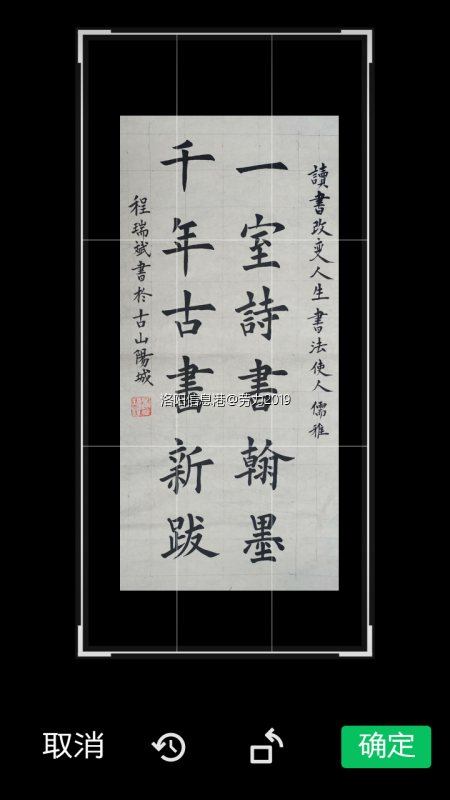 讀書改变人生書法使人儒雅
一室詩書翰墨
千年古書新跋
程瑞斌書於古山陽城
洛阳信息港@劳力2019
取消
确定